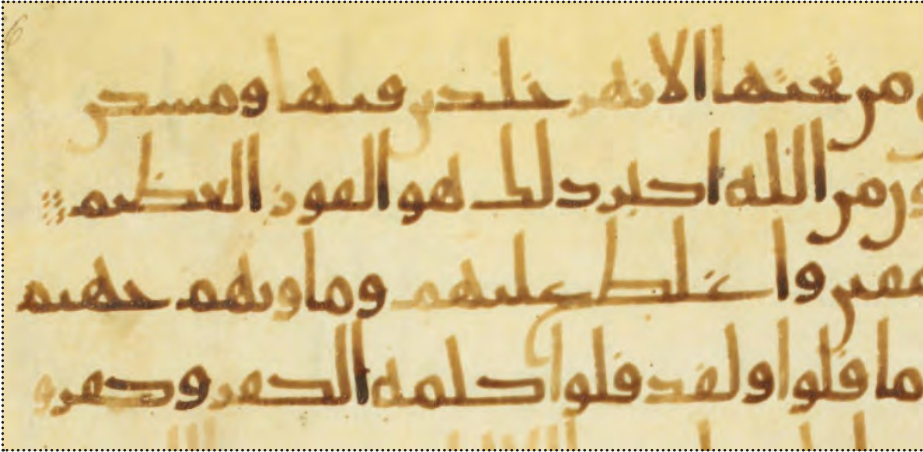 من تحتها الانهر خلدين فيها ومسكن
ن من الله اكبر ذلك هو الفوز العظيم
فقين واغلظ عليهم وماويهم جهنم
ما قلوا ولقد قلوا كلمه الكفر وكفرو